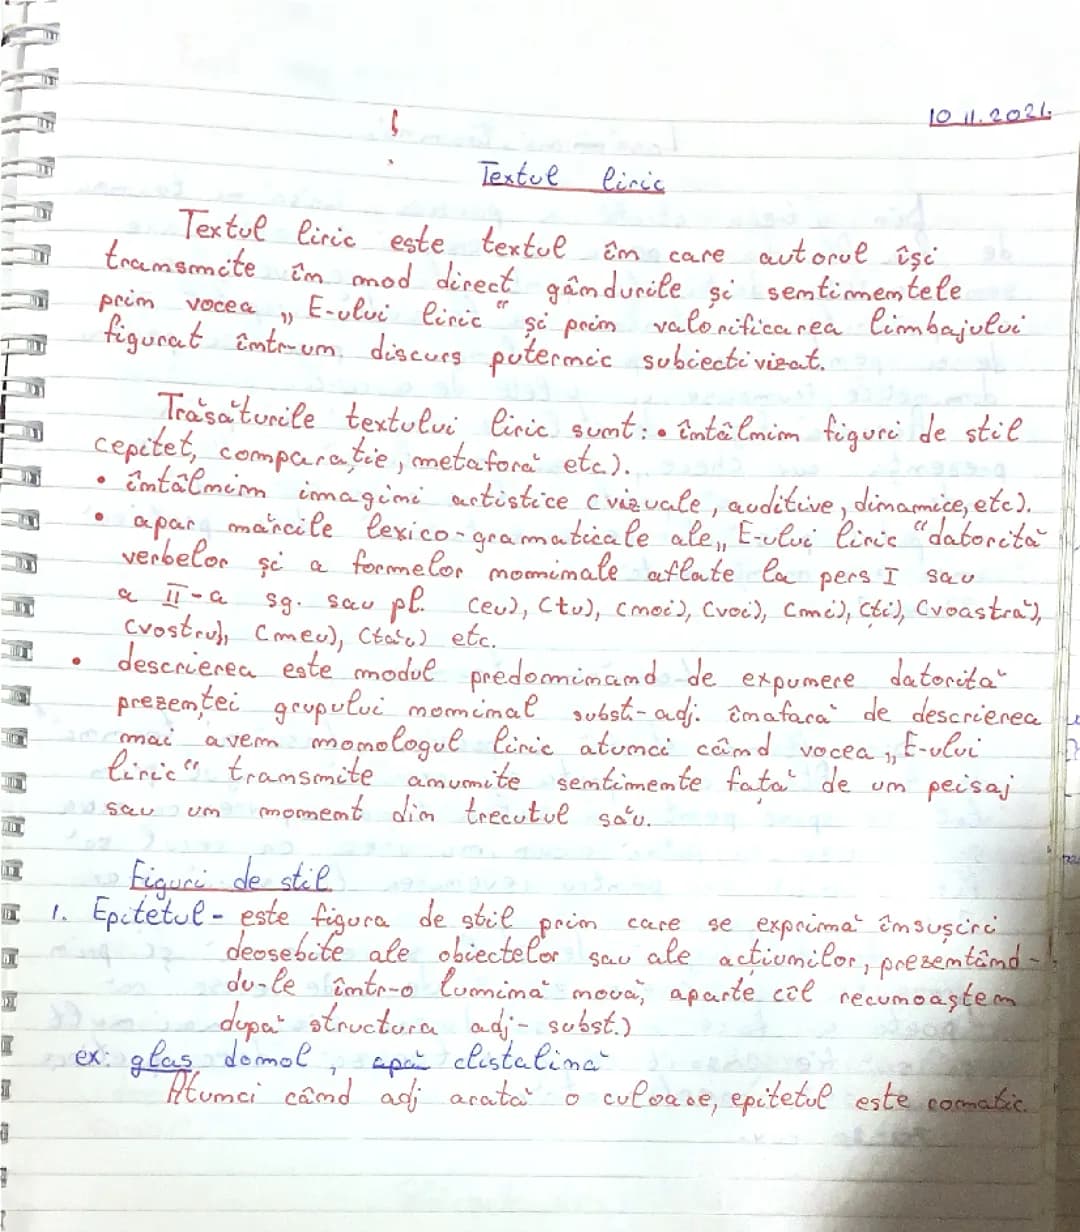 10.11.2021.
Textul liric
Textul liric este textul în care autorul își
transmite în mod direct gândurile și sentimentele
prin vocea „E-ului liric“ și prin valorificarea limbajului
figurat într-un discurs puternic subiectivizat.
Trăsăturile textului liric sunt: • întâlnim figuri de stil
(epitet, comparație, metaforă etc).
• întâlnim imagini artistice (vizuale, auditive, dinamice, etc).
• apar mărcile lexico-gramaticale ale „E-ului liric“ datorită
verbelor și a formelor nominale aflate la pers I sau
a II-a sg. sau pl. (eu), (tu), (noi), (voi), (mi), (ti), (voastră),
(vostru), (meu), (tău) etc.
• descrierea este modul predominand de expunere datorită
prezenței grupului nominal subst-adj. înafară de descrierea
mai avem monologul liric atunci când vocea „E-ului
liric“ transmite anumite sentimente față de un peisaj
sau un moment din trecutul său.
Figuri de stil
1. Epitetul - este figura de stil prin care se exprimă însușiri
deosebite ale obiectelor sau ale acțiunilor, prezentând-
du-le într-o lumină nouă, aparte (îl recunoaștem
după structura adj-subst.)
ex: glas domol, apă clistalină
Atunci când adj arată o culoare, epitetul este comatic.